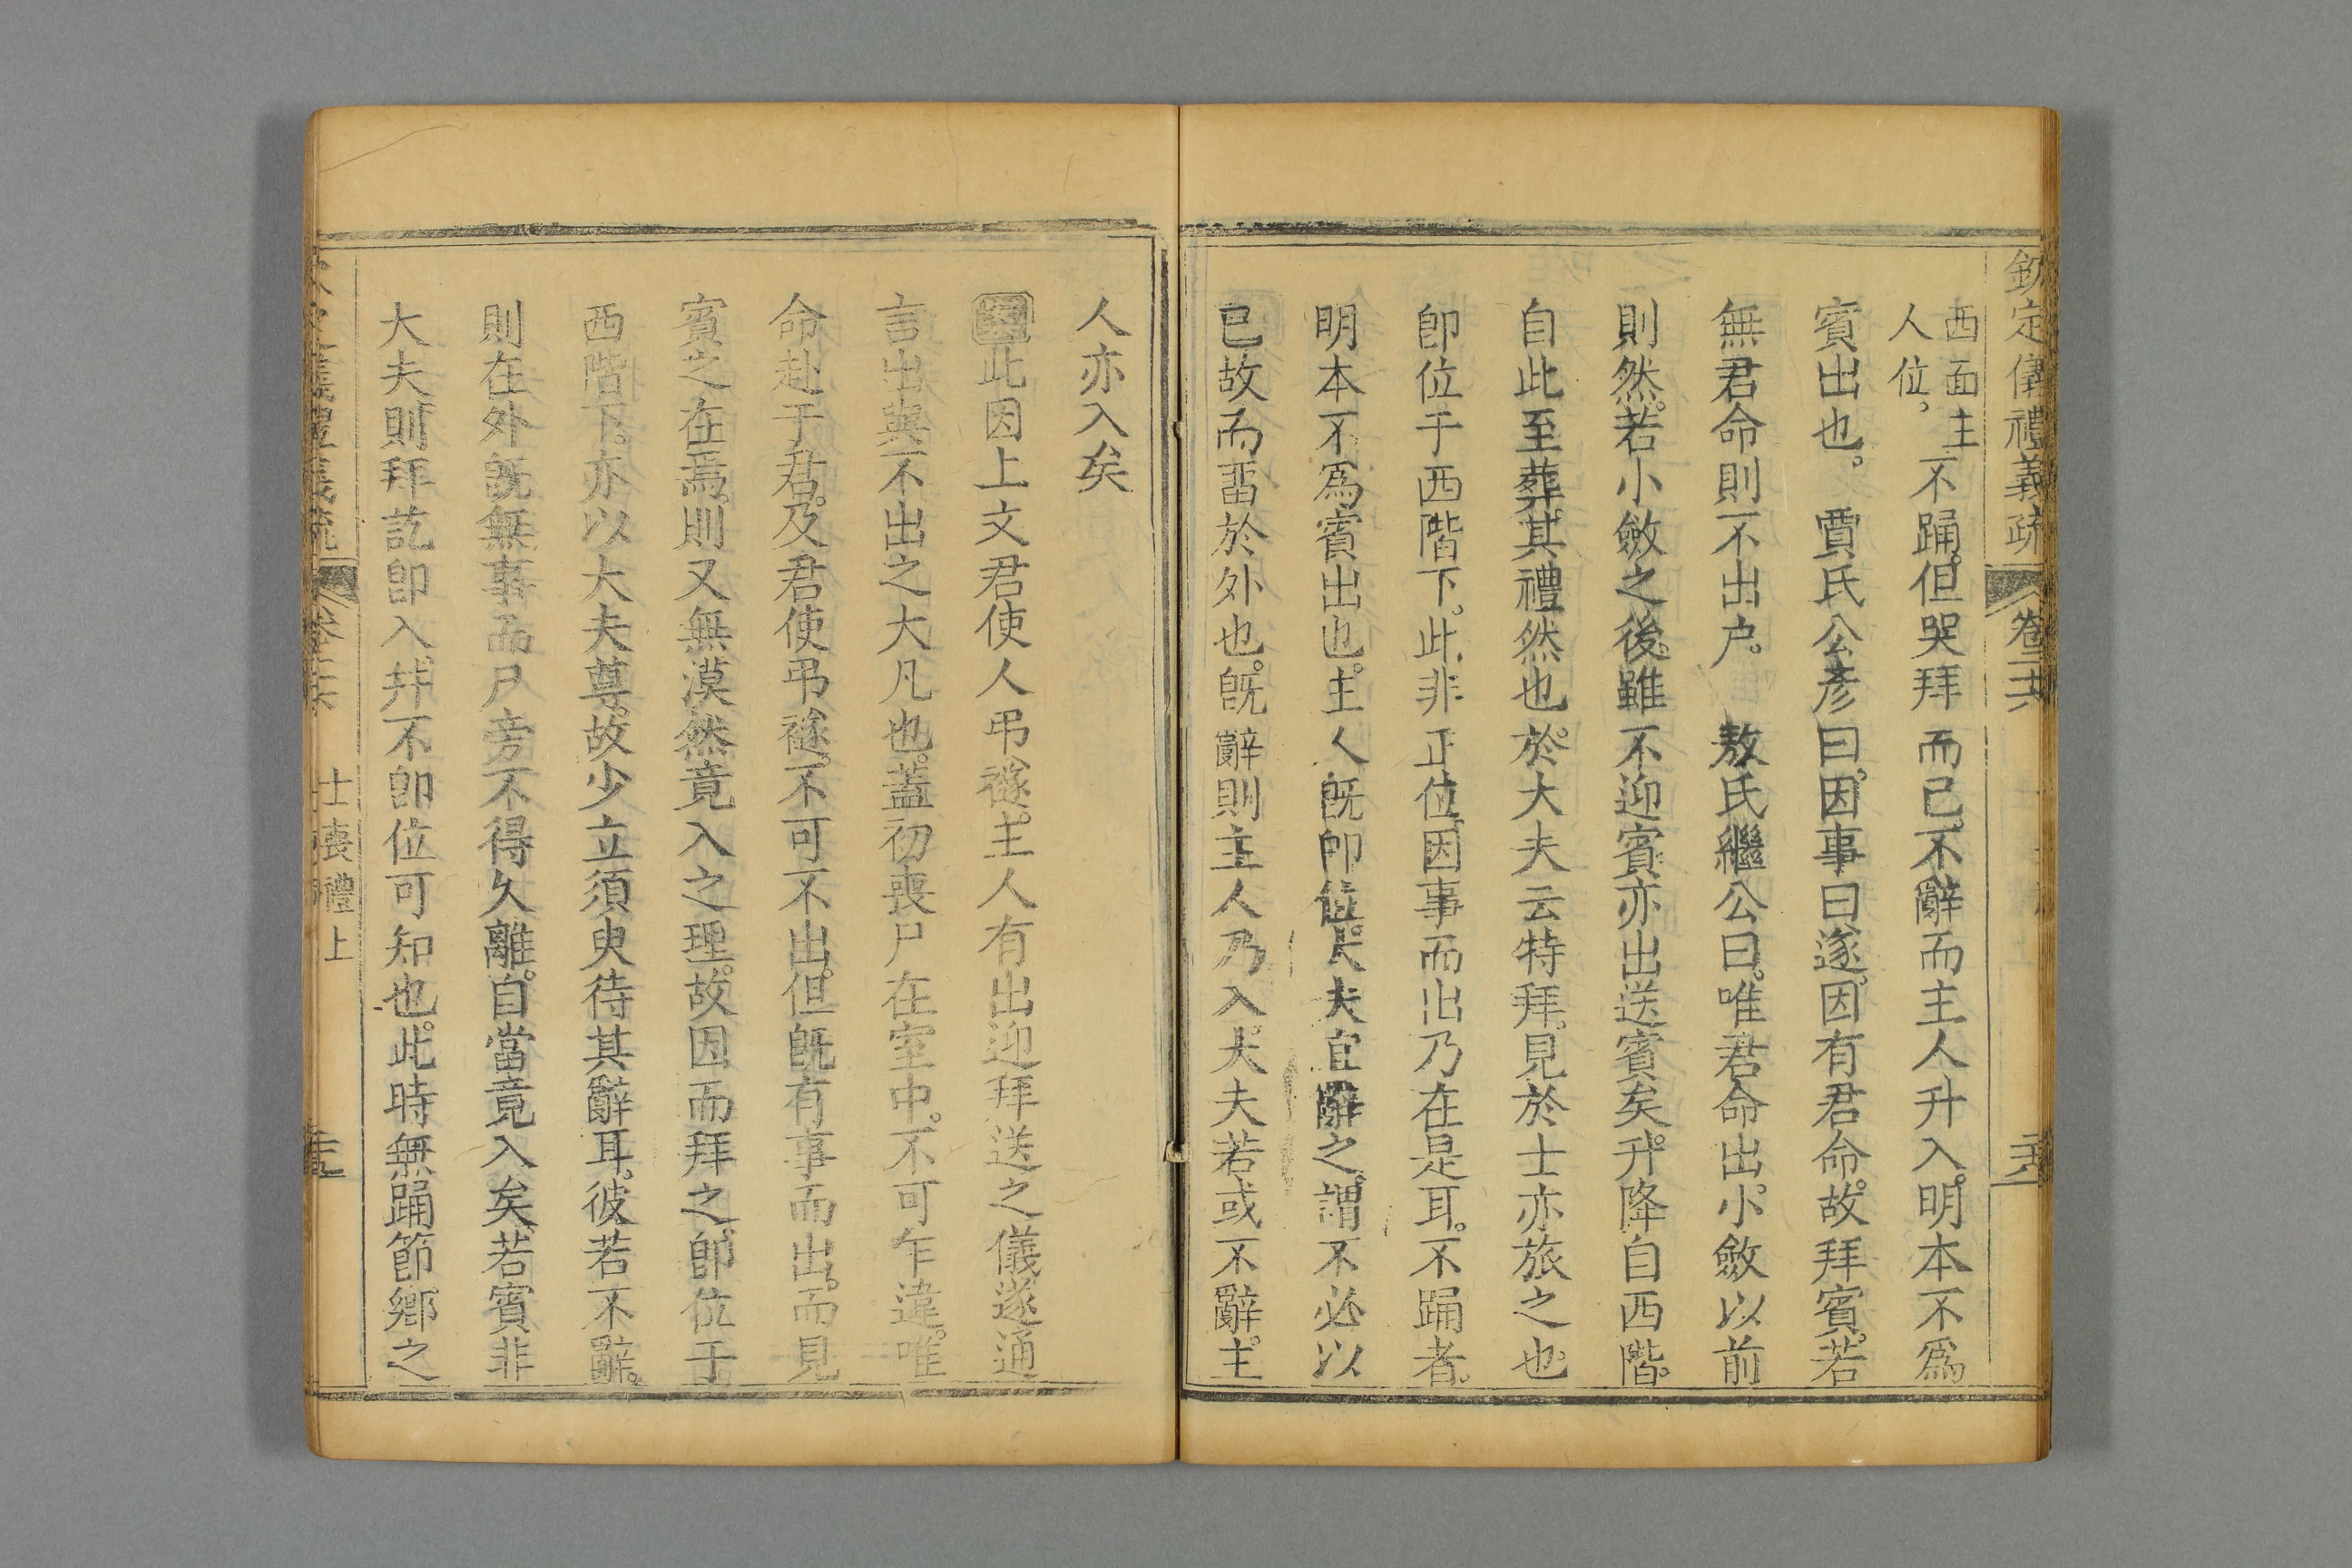 欽定儀禮義疏 卷二十六
西面主
人位
不踊但哭拜而已不辭而主人升入明本不爲
賓出也。 賈氏公彥曰因事曰遂因有君命故拜賓若
無君命則不出户。 敖氏繼公曰唯君命出小斂以前
則然若小斂之後雖不迎賓亦出送賓矣升降自西階
自此至葬其禮然也於大夫云特拜見於士亦旅之也
卽位于西階下此非正位因事而出乃在是耳不踊者
明本不爲賓出也主人旣卽位大夫宜辭之謂不必以
已故而畱於外也旣辭則主人乃入大夫若或不辭主
人亦入矣
此因上文君使人弔襚主人有出迎拜送之儀遂通
言出與不出之大凡也蓋初喪尸在室中不可乍違唯
命赴于君及君使弔襚不可不出但旣有事而出而見
賓之在焉則又無漠然竟入之理故因而拜之卽位于
西階下亦以大夫尊故少立須臾待其辭耳彼若不辭
則在外旣無事而尸旁不得久離自當竟入矣若賓非
大夫則拜訖卽入拜不卽位可知也此時無踊節鄉之
士喪禮上